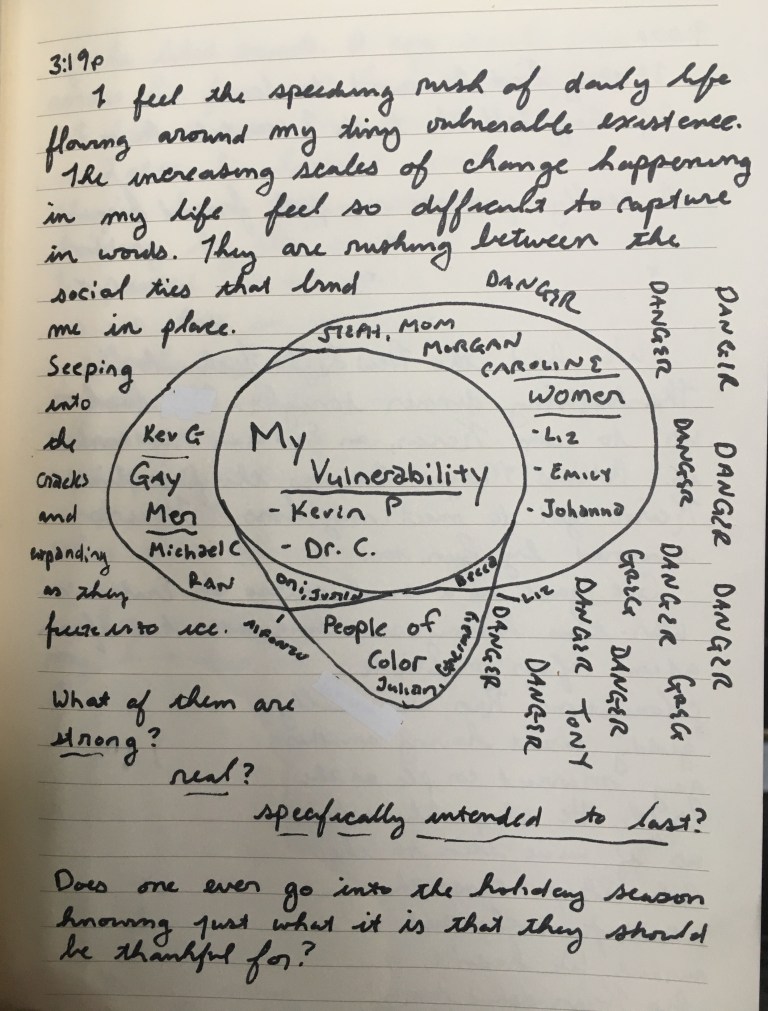 3:19p
I feel the speeding rush of daily life
flowing around my tiny vulnerable existence.
The increasing scales of change happening
in my life feel so difficult to capture
in words. They are rushing between the
social ties that bind
me in place.
Seeping
into
the
cracks
and
expanding
as they
freeze into ice.
DANGER
DANGER
DANGER
STEPH, MOM
MORGAN
CAROLINE
WOMEN
- LIZ
- EMILY
- Johanna
Kev G
GAY
Men
Michael C
RAN
My
Vulnerability
- Kevin P
- Dr. C.
Oni, Justin
Becca
LIZ
People of
Color
Julian
DANGER
DANGER
DANGER
GREG
DANGER
DANGER
DANGER
TONY
DANGER
GREG
DANGER
DANGER
What of them are
strong?
real?
specifically intended to last?
Does one ever go into the holiday season
knowing just what it is that they should
be thankful for?